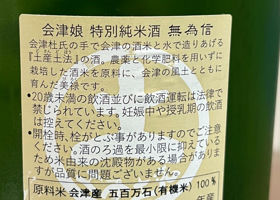 会津娘 特別純米酒 無為信
会津杜氏の手で会津の酒米と水で造りあげる
『土産土法』の酒。農薬と化学肥料を用いずに
栽培した酒米を原料に、会津の風土とともに
育んだ美禄です。
●20歳未満の飲酒並びに飲酒運転は法律で
禁じられています。妊娠中や授乳期の飲酒
はお控えください。
●開栓時、栓がとぶ事がありますのでご注意
ください。酒のろ過を最小限に抑えている
ため米由来の沈殿物がある場合があります
が品質に問題ございません。
原料米 会津産 五百万石(有機米) 100%
年産